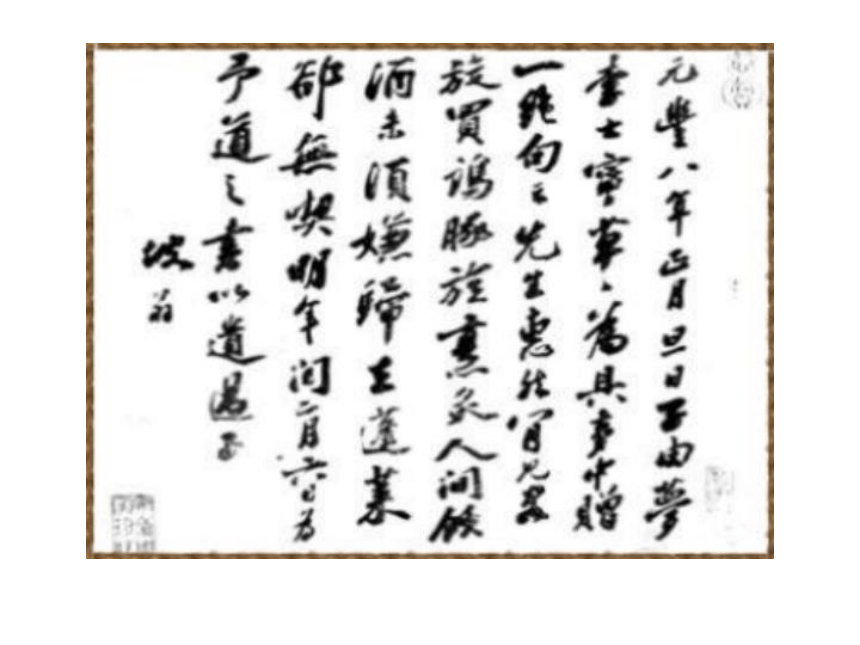 元豐八年正月旦日子由夢
李士寧草〻為具夢中贈
一絶句云先生惠然肯見客
旋買鷄豚旋烹炙人間飲
酒未須嫌歸去蓬萊
却無喫明年閏二月六日為
予道之書以遺過子
坡翁